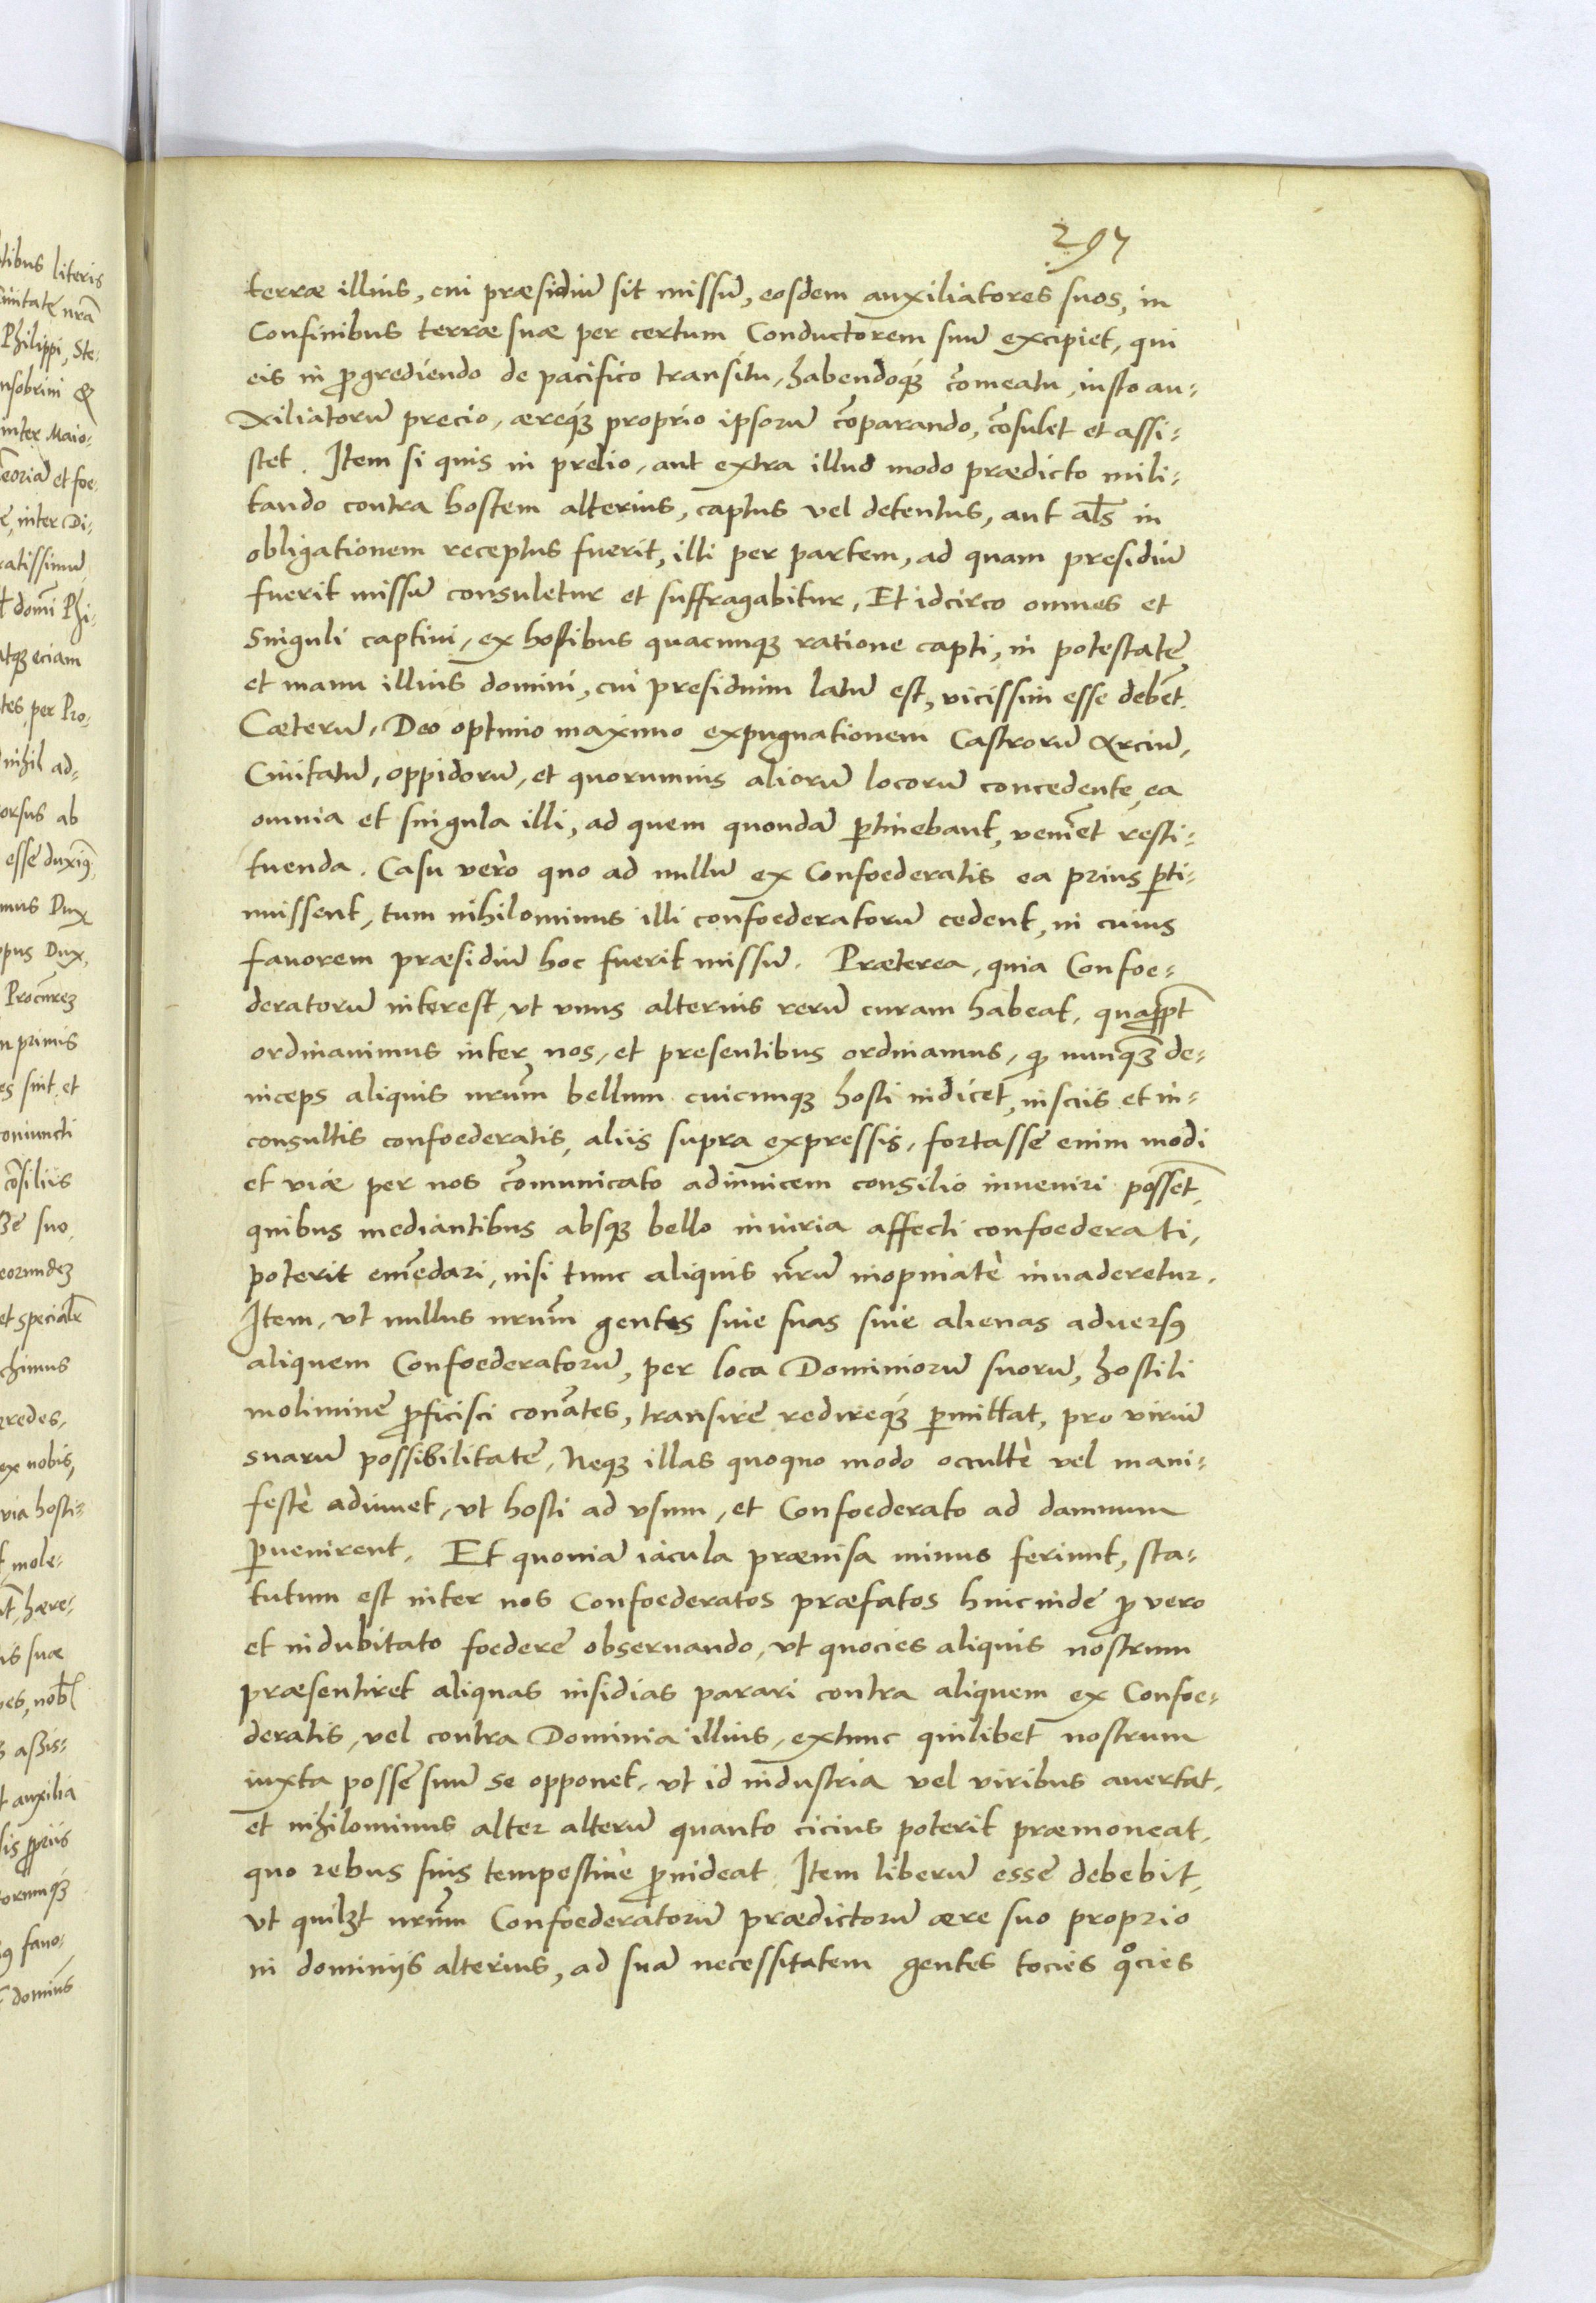 297
terræ illius, cui præsidiū sit missū, eosdem auxiliatores suos, in
Confinibus terræ suæ per certum Conductorem suū excipiet, qui
eis in ꝓgrediendo de pacifico transitu, habendoqꝫ cōmeatu, iusto au-
xiliatorū precio, æreqꝫ proprio ipsorū cōparando, cōsulet et assi-
stet. Item si quis in prelio, aut extra illud modo prædicto mili-
tando contra hostem alterius, captus vel detentus, aut al̄s in
obligationem receptus fuerit, illi per partem, ad quam presidiū
fuerit missū consuletur et suffragabitur, Et idcirco omnes et
Singuli captiui, ex hostibus quacunqꝫ ratione capti, in potestatē
et manu illius domini, cui presidium latū est, vicissim esse debēt.
Cæterū, Deo optimo maximo expugnationem Castrorū Arciū,
Ciuitatū, oppidorū, et quorumuis aliorū locorū concedente, ea
omnia et singula illi, ad quem quondā ꝑtinebant, veniēt resti-
tuenda. Casu vero quo ad nullū ex Confoederatis ea prius ꝑti-
nuissent, tum nihilominus illi confoederatorū cedent, in cuius
fauorem præsidiū hoc fuerit missū. Præterea, quia Confoe-
deratorū interest, vt vnus alterius rerū curam habeat, quaꝓpt̄
ordinauimus inter nos, et presentibus ordinamus, ꝙ nunqꝫ de-
inceps aliquis nr̄um bellum cuicunqꝫ hosti indicet, insciis et in-
consultis confoederatis, aliis supra expressis, fortasse enim modi
et viæ per nos cōmunicato adinuicem consilio inueniri possēt,
quibus mediantibus absqꝫ bello iniuria affecti confoederati,
poterit emēdari, nisi tunc aliquis nr̄um inopinatè inuaderetur.
Item, vt nullus nr̄um gentes siue suas siue alienas aduersꝰ
aliquem Confoederatorū, per loca Dominiorū suorū, hostili
molimine ꝓficisci conātes, transire redireqꝫ ꝑmittat, pro viriū
suarū possibilitate, Neqꝫ illas quoquo modo occultè vel mani-
festè adiuuet, vt hosti ad vsum, et Confoederato ad damnum
ꝑuenirent. Et quoniā iacula præuisa minus feriunt, sta-
tutum est inter nos Confoederatos præfatos hincinde ꝓ vero
et indubitato foedere obseruando, vt quocies aliquis nostrum
præsentiret aliquas insidias parari contra aliquem ex Confoe-
deratis, vel contra Dominia illius, extunc quilibet nostrum
iuxta posse suū se opponet, vt id industria vel viribus auertat,
et nihilominus alter alterū quanto cicius poterit præmoneat,
quo rebus suis tempestiue ꝓuideat. Item liberū esse debebit,
vt quilꝫt nr̄um Confoederatorū prædictorū ære suo proprio
in dominijs alterius, ad suā necessitatem gentes tocies qͦcies